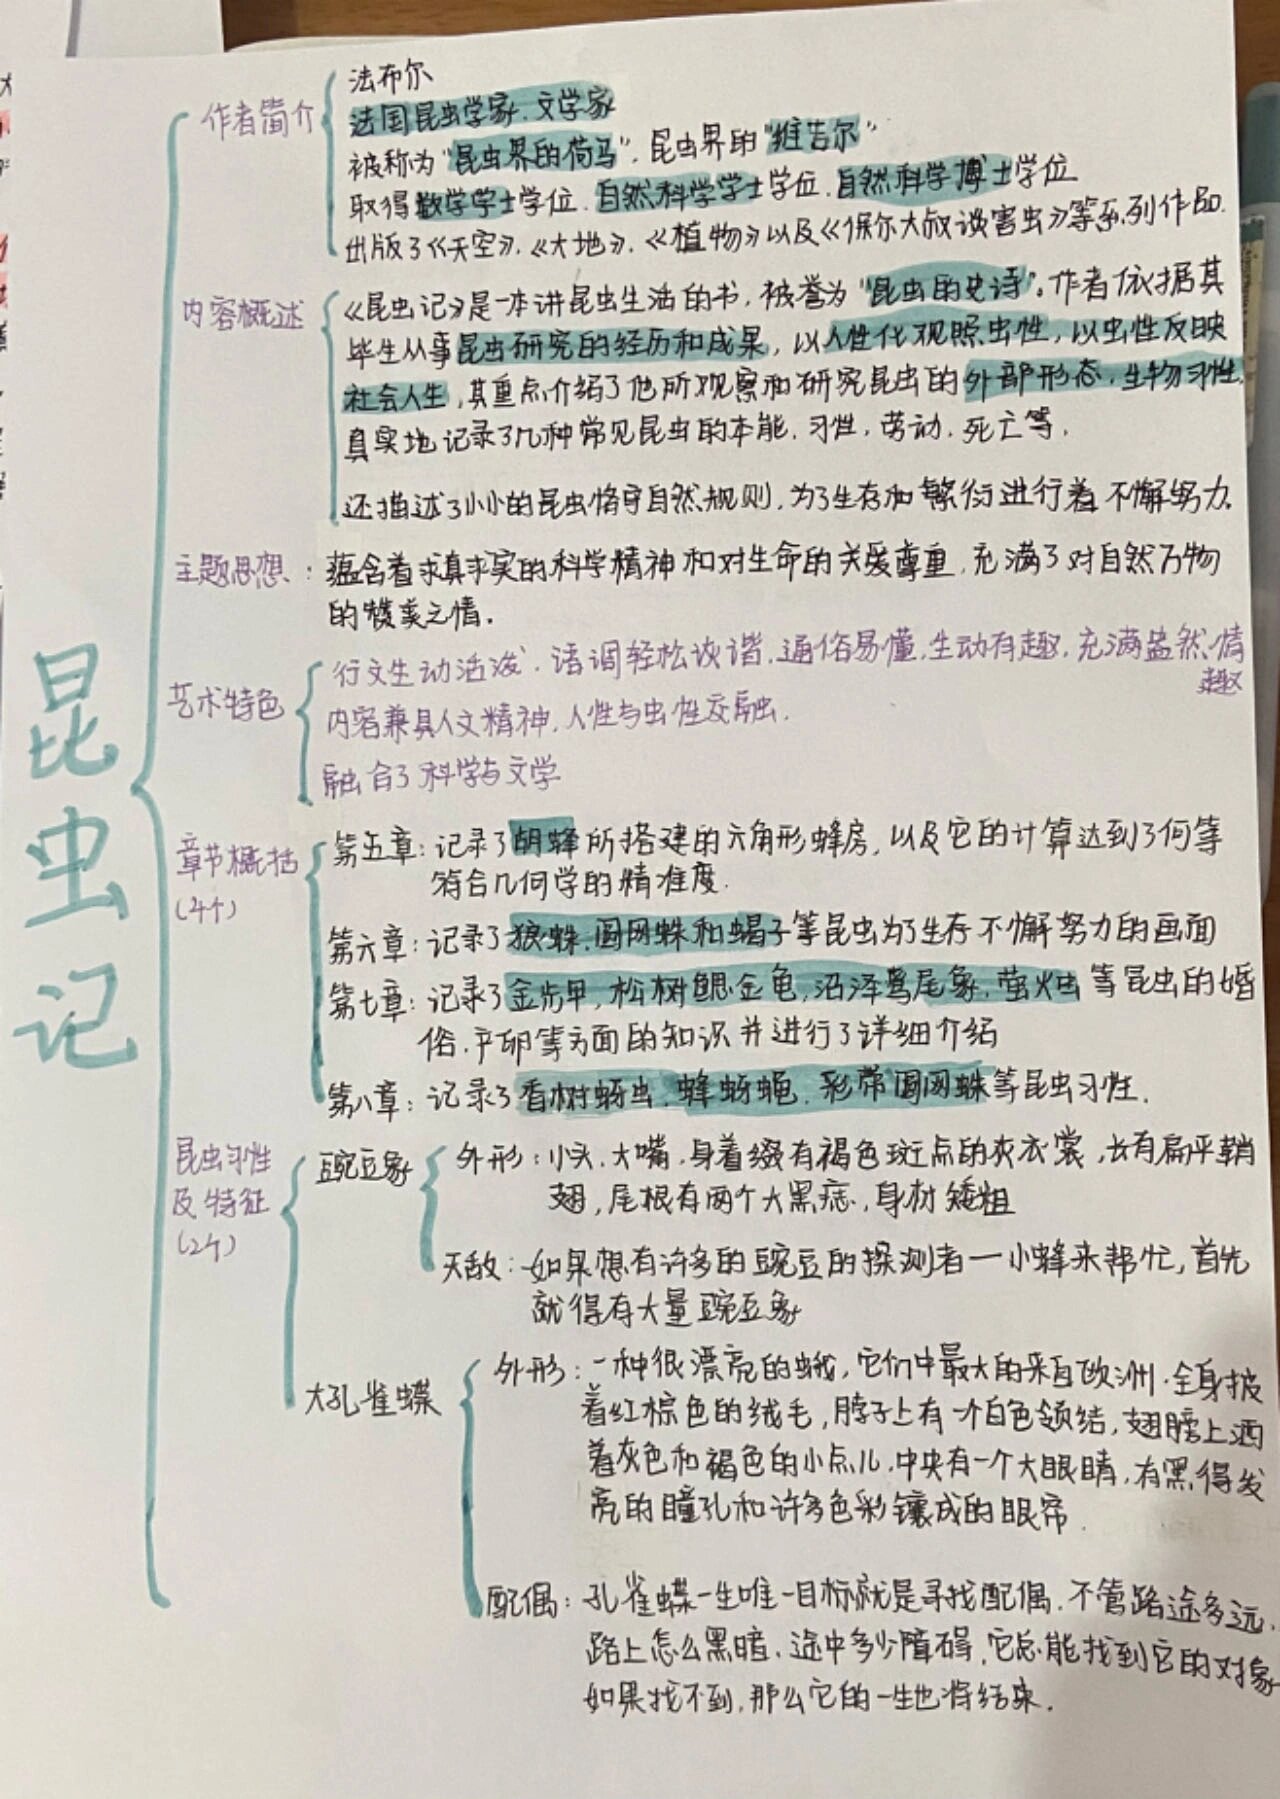 昆虫记
作者简介
法布尔
法国昆虫学家.文学家
被称为"昆虫界的荷马".昆虫界的"维吉尔"
取得数学学士学位.自然科学学士学位.自然科学博士学位
出版了《天空》.《大地》.《植物》以及《保尔大叔谈害虫》等系列作品.
内容概述
《昆虫记》是一本讲昆虫生活的书,被誉为"昆虫的史诗"。作者依据其
毕生从事昆虫研究的经历和成果,以人性化观照虫性,以虫性反映
社会人生,其重点介绍了他所观察和研究昆虫的外部形态.生物习性,
真实地记录了几种常见昆虫的本能.习性,劳动.死亡等.
还描述了小小的昆虫恪守自然规则,为了生存和繁衍进行着不懈努力.
主题思想:蕴含着求真求实的科学精神和对生命的关爱尊重,充满了对自然万物
的赞美之情.
艺术特色
行文生动活泼.语调轻松诙谐.通俗易懂,生动有趣,充满盎然情
趣
内容兼具人文精神.人性与虫性交融.
融合了科学与文学
章节概括
(4个)
第五章:记录了胡蜂所搭建的六角形蜂房,以及它的计算达到了何等
符合几何学的精准度.
第六章:记录了狼蛛.圆网蛛和蝎子等昆虫为了生存不懈努力的画面
第七章:记录了金步甲,松树鳃金龟,沼泽鸢尾象.萤火虫等昆虫的婚
俗.产卵等方面的知识并进行了详细介绍
第八章:记录了香树蚜虫.蜂蚜蝇.彩带圆网蛛等昆虫习性.
昆虫习性
及特征
(2个)
豌豆象
外形:小头.大嘴.身着缀有褐色斑点的灰衣裳,长有扁平鞘
翅,尾根有两个大黑痣,身材矮粗
天敌:如果想有许多的豌豆的探测者一小蜂来帮忙,首先
就得有大量豌豆象
大孔雀蝶
外形:一种很漂亮的蛾,它们中最大的来自欧洲.全身披
着红棕色的绒毛,脖子上有一个白色领结,翅膀上洒
着灰色和褐色的小点儿.中央有一个大眼睛,有黑得发
亮的瞳孔和许多色彩镶成的眼帘.
配偶:孔雀蝶一生唯一目标就是寻找配偶.不管路途多远,
路上怎么黑暗.途中多少障碍,它总能找到它的对象
如果找不到,那么它的一生也将结束.